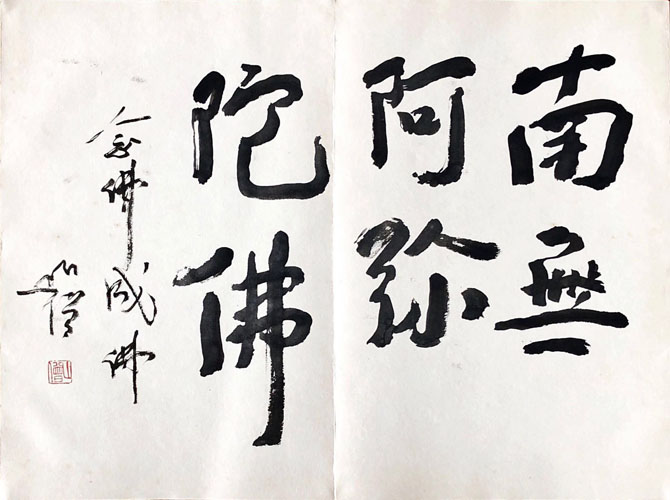 南無
阿弥
陀佛
念佛成佛